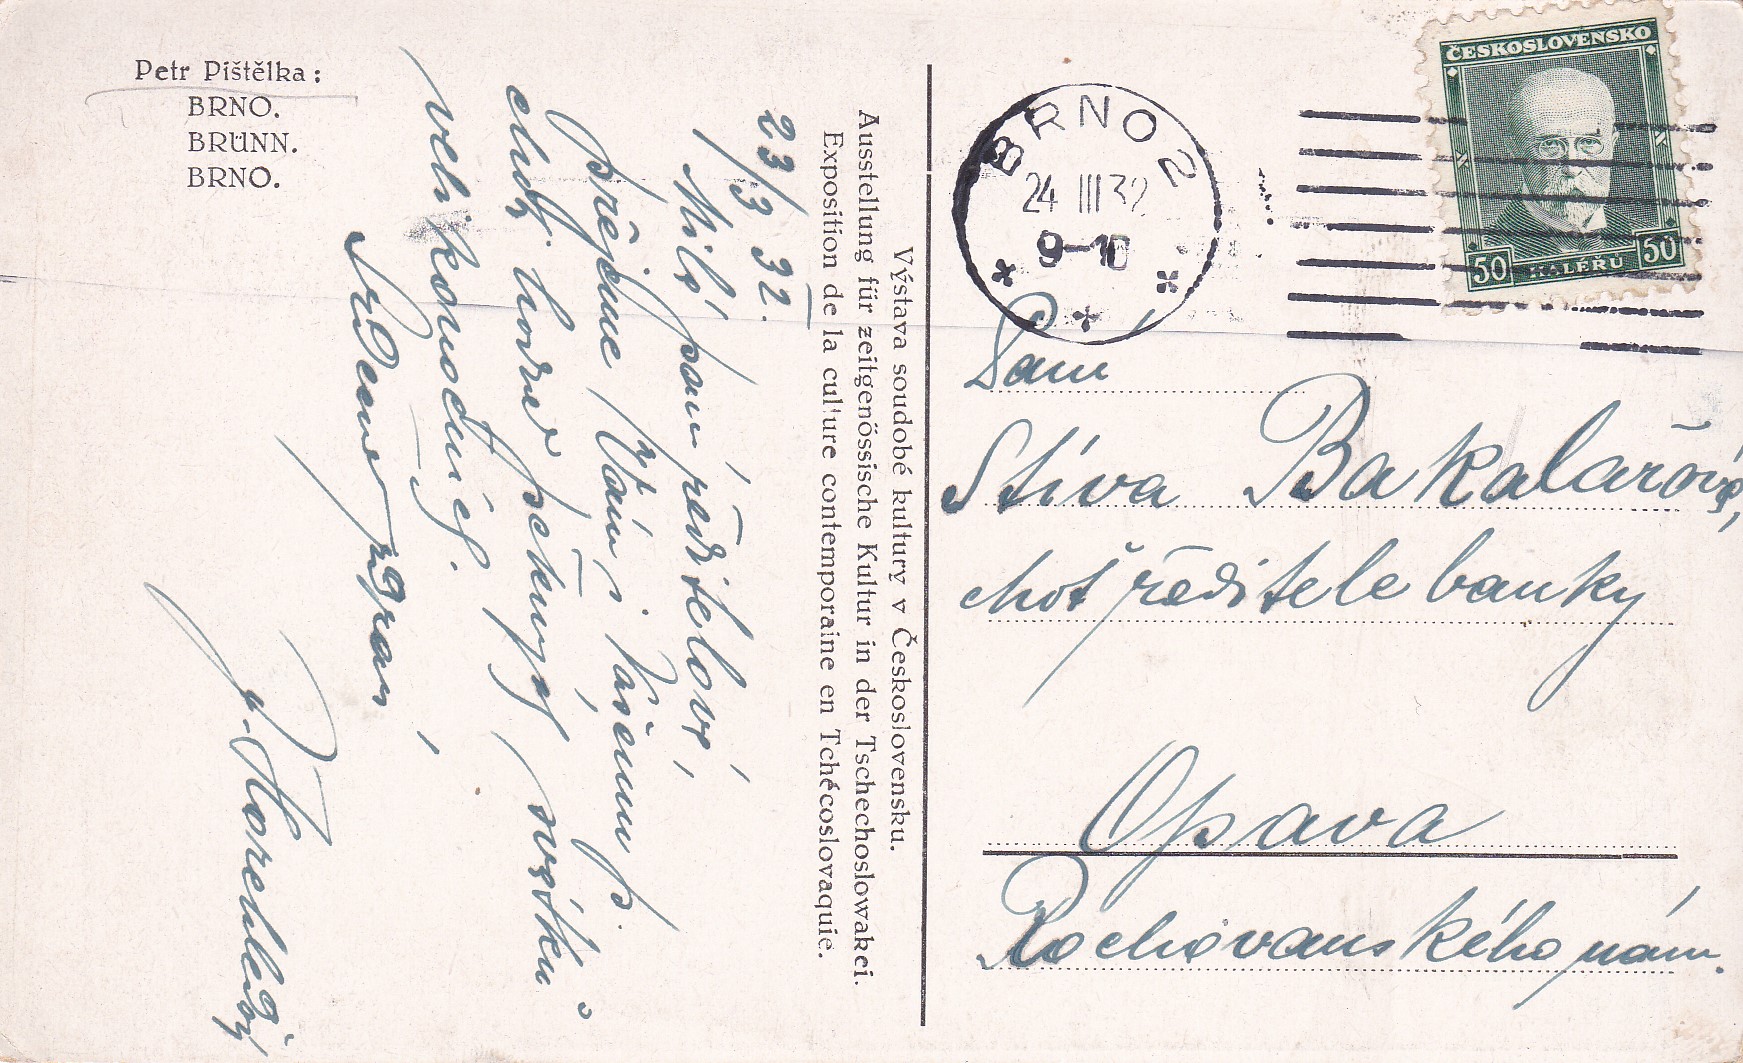 Petr Pištělka:
BRNO.
BRÜNN.
BRNO.
23/3 32.
Milá paní ředitelová,
přejeme Vám i Vašemu p.
choti hodně pěkných svátků
velikonočních.
Srdečně zdraví
Výstava soudobé kultury v Československu.
Ausstellung für zeitgenössische Kultur in der Tschechoslowakei.
Exposition de la culture contemporaine en Tchécoslovaquie.
BRNO 2
24 III 32
9-10
ČESKOSLOVENSKO
50 HALÉŘŮ 50
Paní
Stíva Bakalářová,
choť ředitele banky
Opava
Rochovanského nám.